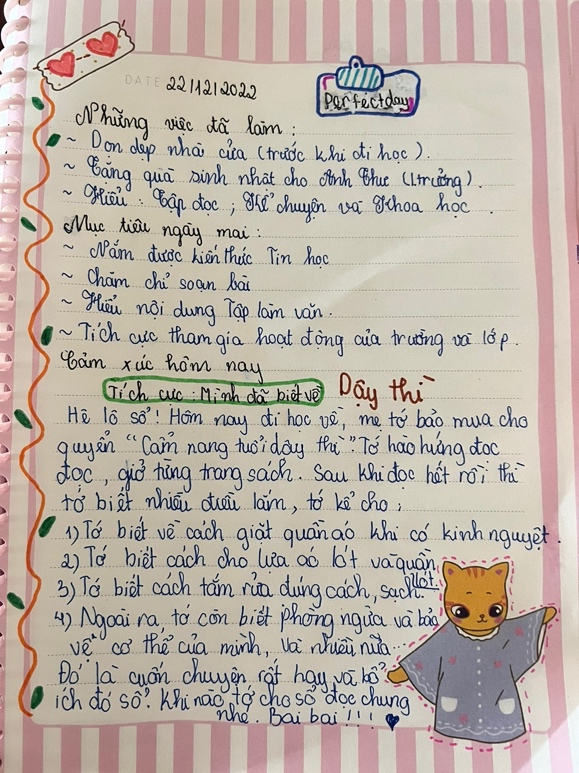 DATE 22/12/2022
Perfectday
Những việc đã làm :
~ Dọn dẹp nhà cửa (trước khi đi học).
~ Tặng quà sinh nhật cho Anh Thư (1 trưởng).
~ Hiểu : Tập đọc ; Kể chuyện và Khoa học.
Mục tiêu ngày mai :
~ Nắm được kiến thức Tin học
~ Chăm chỉ soạn bài
~ Hiểu nội dung Tập làm văn.
~ Tích cực tham gia hoạt động của trường và lớp.
Cảm xúc hôm nay
Tích cực : Mình đã biết về Dậy thì
Hê lô sổ! Hôm nay đi học về, mẹ tớ bảo mua cho
quyển "Cẩm nang tuổi dậy thì". Tớ hào hứng đọc
đọc, giở từng trang sách. Sau khi đọc hết rồi thì
tớ biết nhiều điều lắm, tớ kể cho :
1) Tớ biết về cách giặt quần áo khi có kinh nguyệt.
2) Tớ biết cách cho lựa áo lót và quần
lót.
3) Tớ biết cách tắm rửa đúng cách, sạch.
4) Ngoài ra, tớ còn biết phòng ngừa và bảo
vệ cơ thể của mình, và nhiều nữa...
Đó là cuốn chuyện rất hay và bổ
ích đó sổ! Khi nào tớ cho sổ đọc chung
nhé. Bai bai !!!